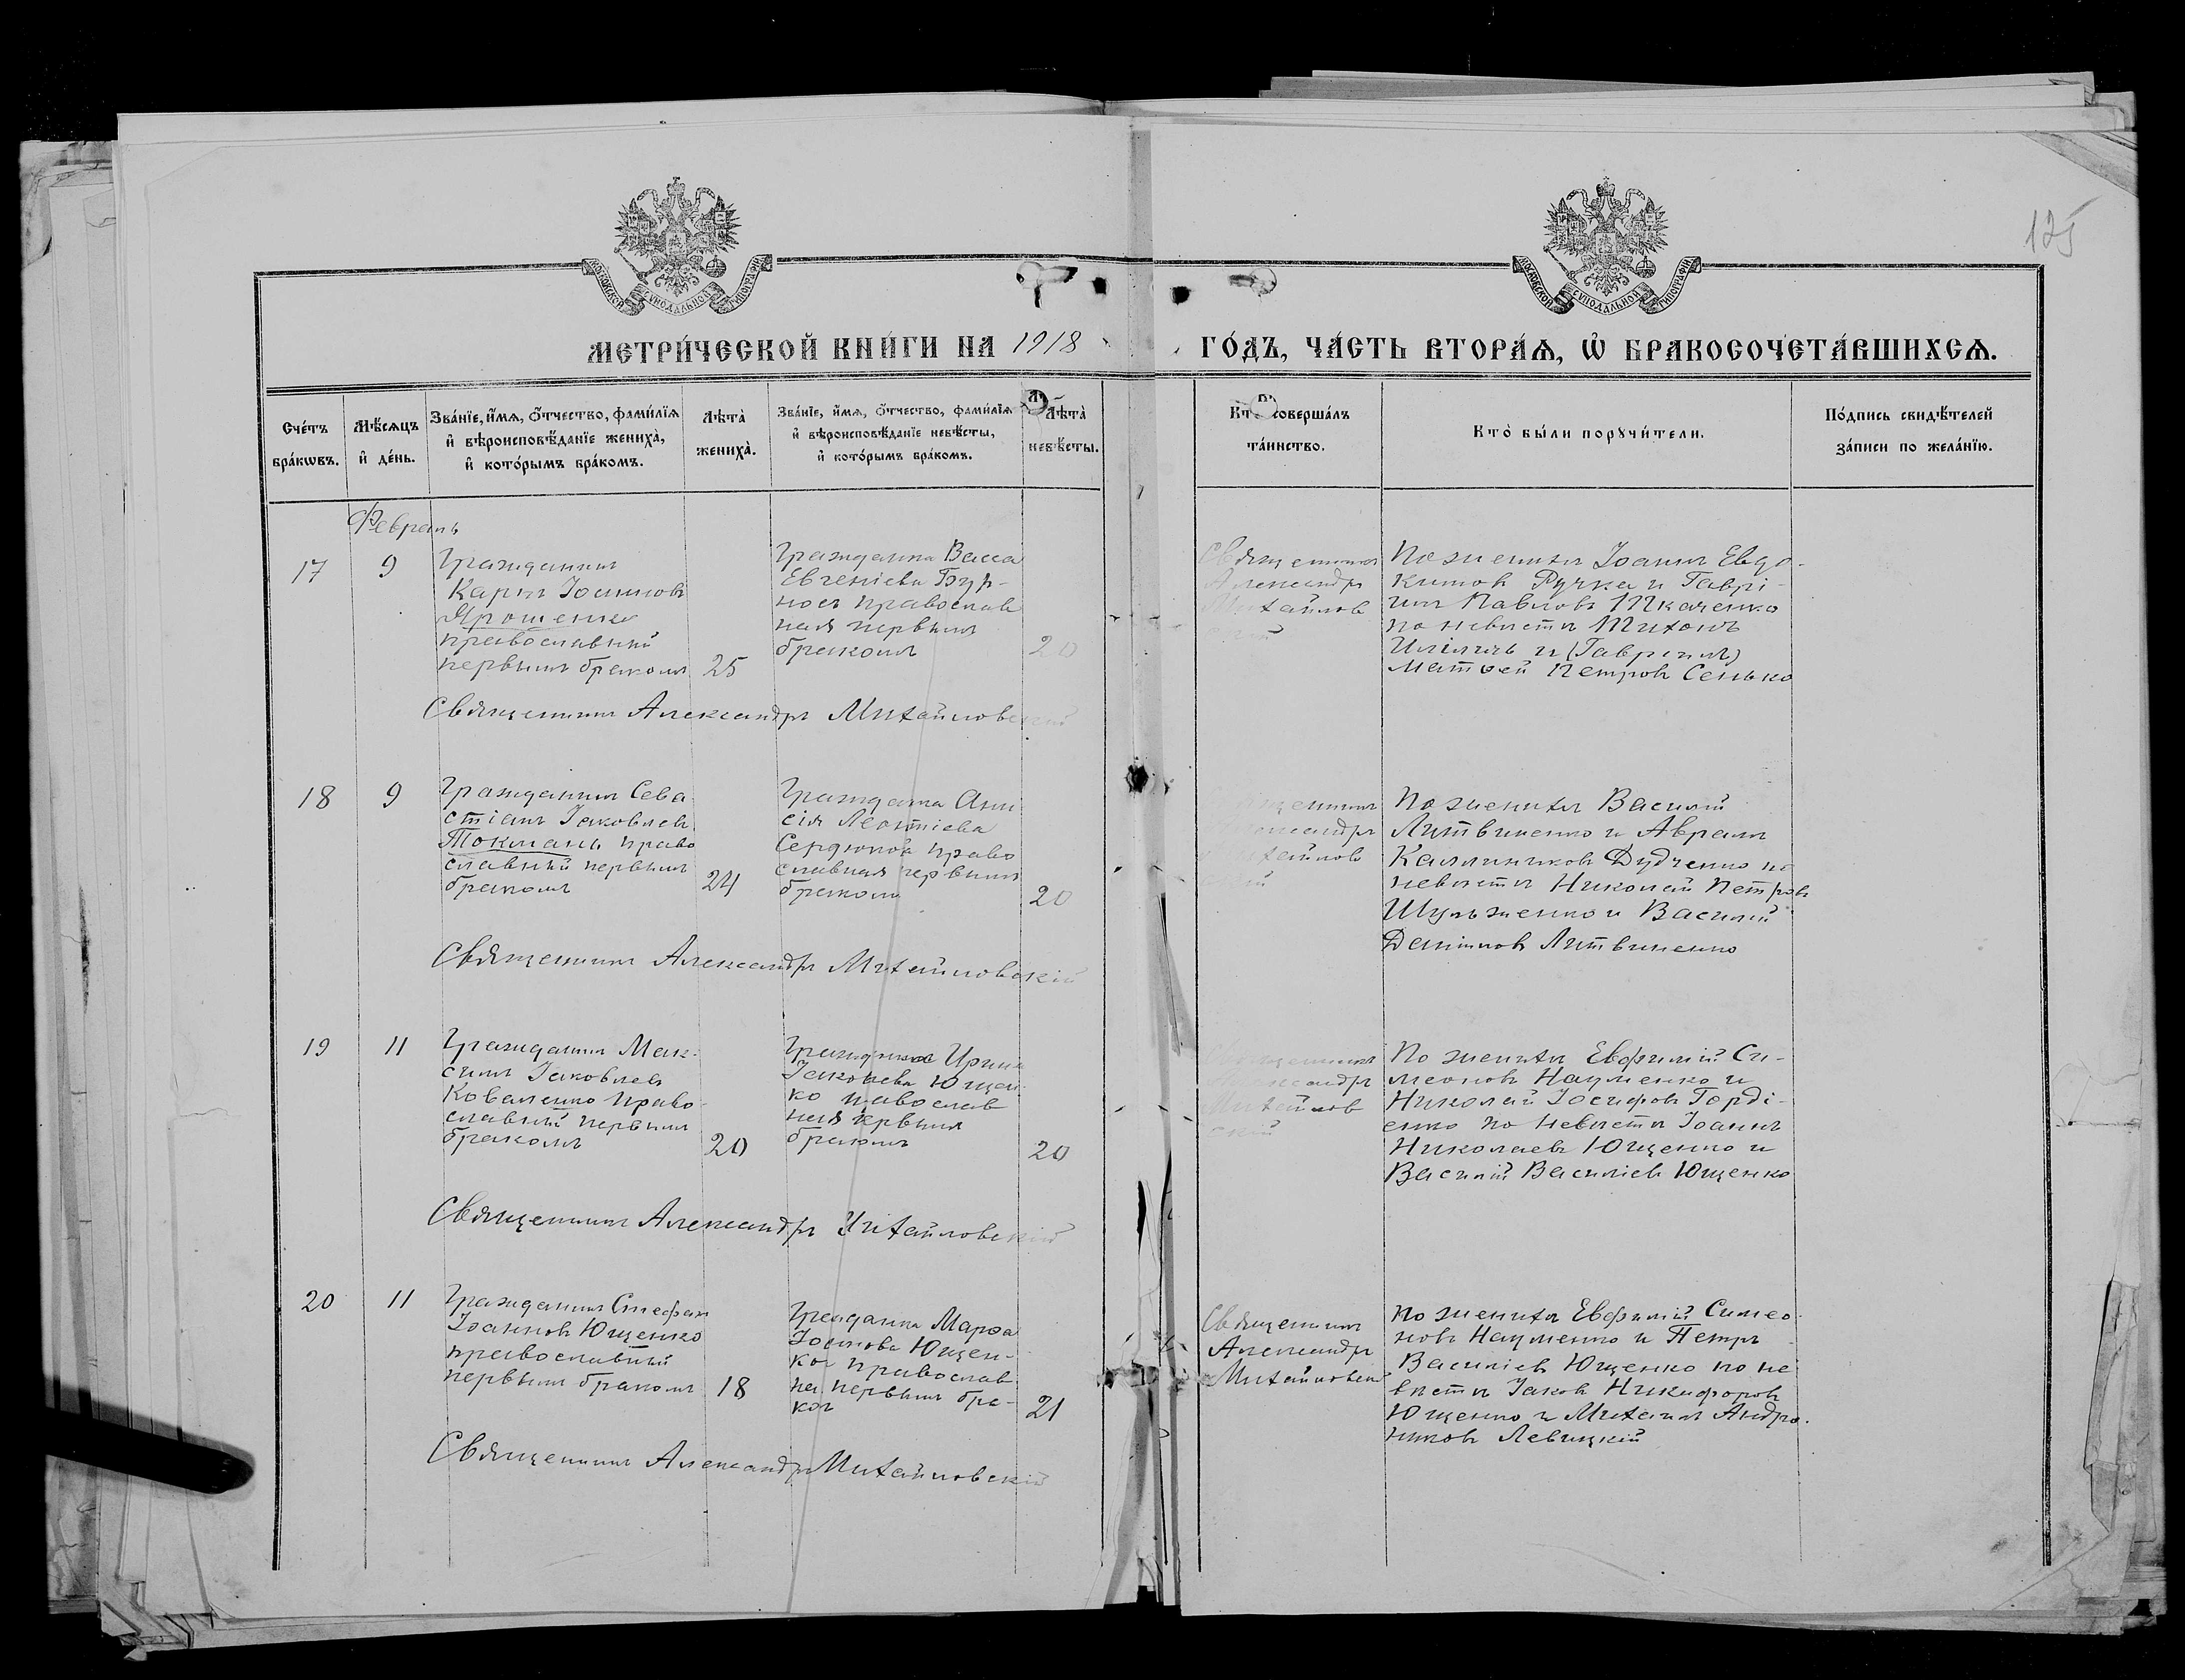 125
МОСКОВСКОЙ СУНОДАЛЬНОЙ ТИПОГРАФІИ
МОСКОВСКОЙ СУНОДАЛЬНОЙ ТИПОГРАФІИ
МЕТРИ́ЧЕСКОЙ КНИ́ГИ НА 1918
ГО́ДЪ, ЧА́СТЬ ВТОРА́Ѧ, Ѡ҆ БРАКОСОЧЕТА́ВШИХСѦ.
Сче́тъ
бра́кѡвъ.
Мѣ́сѧцъ
и҆ де́нь.
Зва́нїе, и҆́мѧ, ѻ҆́тчество, фами́лїѧ
и҆ вѣроисповѣ́данїе жениха̀,
и҆ кото́рымъ бра́комъ.
Лѣ́та̀
жениха̀.
Зва́нїе, и҆́мѧ, ѻ҆́тчество, фами́лїѧ
и҆ вѣроисповѣ́данїе невѣ́сты,
и҆ кото́рымъ бра́комъ.
Лѣ́та̀
невѣ́сты.
Кто̀ соверша́лъ
та́инство.
Кто̀ бы́ли порꙋчи́тели.
По́дпись свидѣ́телей
за́писи по жела́нїю.
Февраль
17
9
Гражданинъ
Карпъ Іоанновъ
Ярошенко
православный
первымъ бракомъ
25
Гражданка Васса
Евгеніева
православ
ная первымъ
бракомъ
20
Священникъ
Александръ
Михайлов
скій
По женихѣ Іоаннъ Евдо-
кимовъ Ручка и Гаврі-
илъ Павловъ Ткаченко
по невѣстѣ Тихонъ
и (Гавріилъ)
Матѳей Петровъ Сенько
Священникъ Александръ Михайловскій
18
9
Гражданинъ Сева
стіанъ Іаковлевъ
Токмань право
славный первымъ
бракомъ
24
Гражданка Ани
сія Леонтіева
Сердюкова право
славная первымъ
бракомъ
20
Священникъ
Александръ
Михайлов
скій
По женихѣ Василій
Литвиненко и Авраамъ
Каллиниковъ Дудченко по
невѣстѣ Николай Петровъ
Шульженко и Василій
Даниловъ Литвиненко
Священникъ Александръ Михайловскій
19
11
Гражданинъ Мак-
симъ Іаковлевъ
Коваленко право-
славный первымъ
бракомъ
20
Гражданка Ирина
Іаковлева Ющен-
ко православ
ная первымъ
бракомъ
20
Священникъ
Александръ
Михайлов
скій
По женихѣ Евфимій Си-
меоновъ Науменко и
Николай Іосифовъ Горді-
енко по невѣстѣ Іоаннъ
Николаевъ Ющенко и
Василій Василіевъ Ющенко
Священникъ Александръ Михайловскій
20
11
Гражданинъ Стефанъ
Іоанновъ Ющенко
православный
первымъ бракомъ
18
Гражданка Марѳа
Іоаннова Ющен-
ко православ
на первымъ бра-
ком
21
Священникъ
Александръ
Михайловскій
по женихѣ Евфимій Симео-
новъ Науменко и Петръ
Василіевъ Ющенко по не
вѣстѣ Іаковъ Никифоровъ
Ющенко и Михаилъ Андро-
никовъ Левицкій
Священникъ Александръ Михайловскій